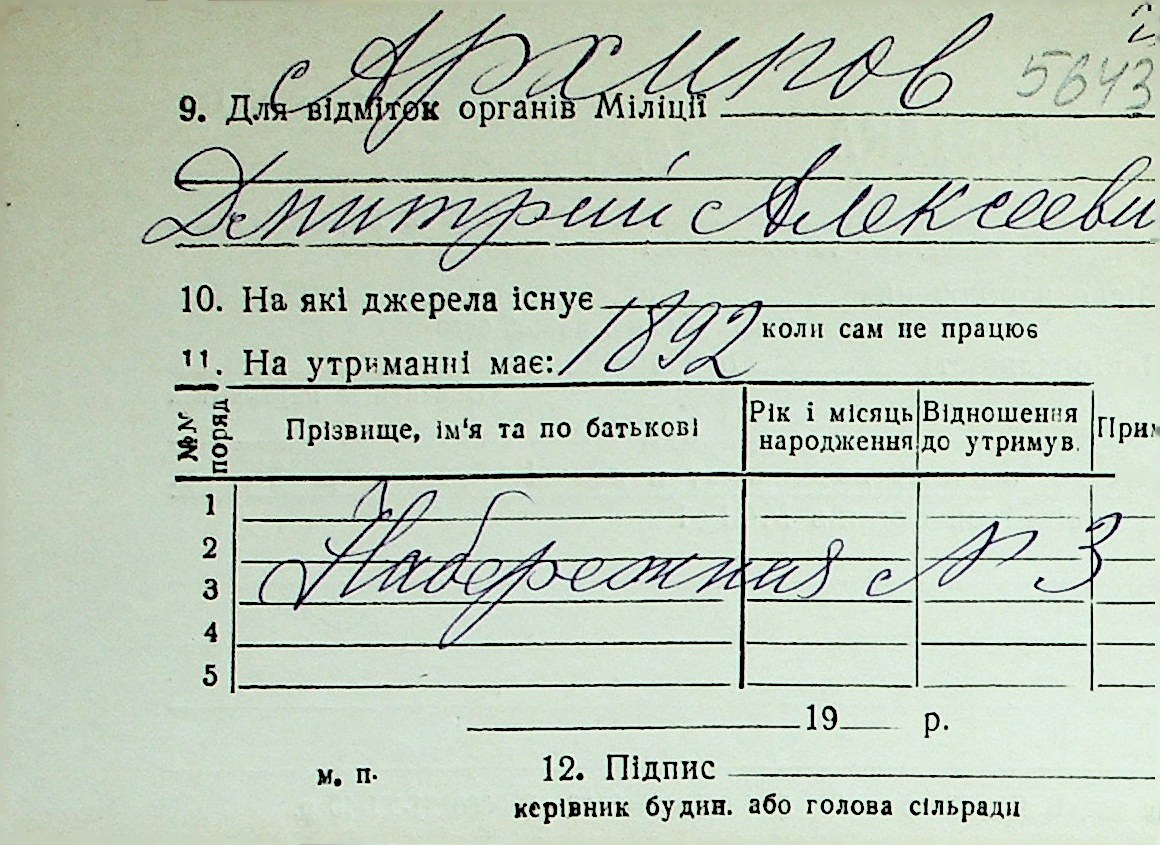 Архипов 5643
9. Для відміток органів Міліції
Дмитрий Алексееви
10. На які джерела існує
коли сам не працює
11. На утриманні має: 1892
№№ поряд Прізвище, ім'я та по батькові Рік і місяць народження Відношення до утримув. Прим
1
2
Набережная № 3
3
4
5
19 р.
м. п. 12. Підпис
керівник будин. або голова сільради